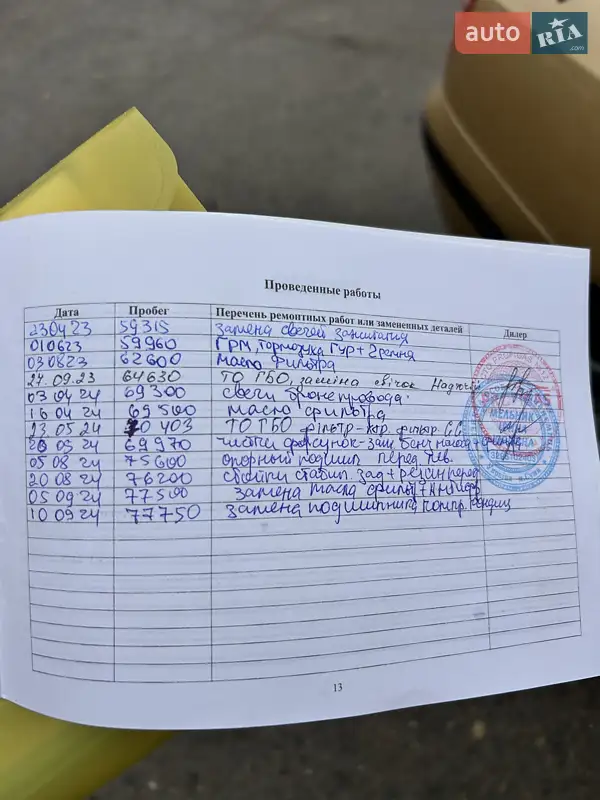 auto RIA .com
Проведенные работы
Дата Пробег Перечень ремонтных работ или замененных деталей Дилер
230423 59315 замена свечей зажигания
010623 59960 ГРМ, тормозуха ГУР + 2 ремня
030823 62600 масло фильтра
27.09.23 64630 ТО ГБО, заміна свічок
03 04 24 69300 свечи бронепровода
16 04 24 69500 масло фильтра
23.05 24 70 403 ТО ГБО фільтр
69970 чистка форсунок
05 08 24 75600 опорный подшип перед лев.
20 08 24 76200 стойки стабил зад
05 09 24 77500 замена масла фильт
10 09 24 77750 замена подшипника компр.
13